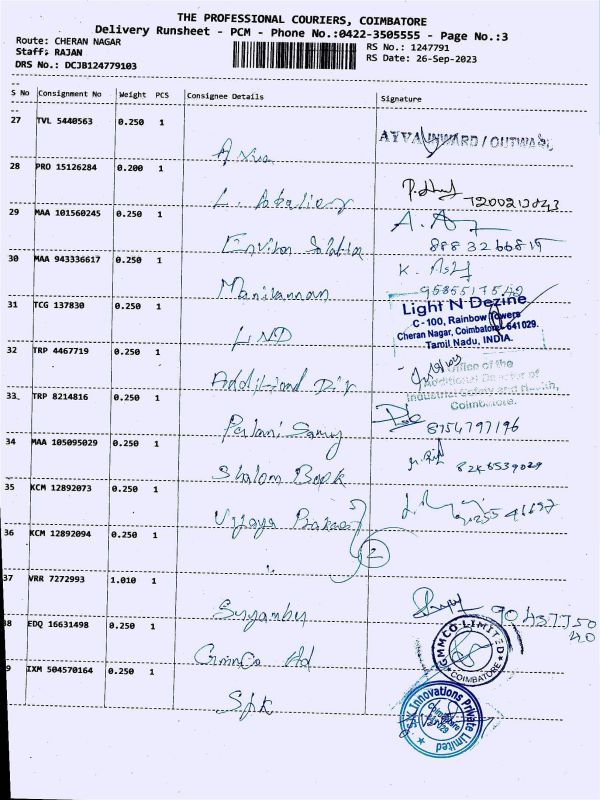 THE PROFESSIONAL COURIERS, COIMBATORE
Delivery Runsheet - PCM - Phone No.:0422-3505555 - Page No.:3
Route: CHERAN NAGAR
RS No.: 1247791
Staff: RAJAN
RS Date: 26-Sep-2023
DRS No.: DCJB124779103
S No Consignment No Weight PCS Consignee Details Signature
27 TVL 5440563 0.250 1
INWARD / OUTWARD
28 PRO 15126284 0.200 1
L.
29 MAA 101560245 0.250 1
A.
8883266815
30 MAA 943336617 0.250 1
Manikannan K.
9585517540
31 TCG 137830 0.250 1
LND
Light N Dezine
C-100, Rainbow Towers
Cheran Nagar, Coimbatore - 641 029.
Tamil Nadu, INDIA.
32 TRP 4467719 0.250 1
Additional Dir
Office of the
Additional Director of
Industrial Safety and Health,
Coimbatore.
33 TRP 8214816 0.250 1
Palani Samy 8754797196
34 MAA 105095029 0.250 1
Shalom Book 8248539029
35 KCM 12892073 0.250 1
Vijaya
36 KCM 12892094 0.250 1
2
37 VRR 7272993 1.010 1
Suyambu 90437750
40
38 EDQ 16631498 0.250 1
GmmCo
GMMCO LIMITED
COIMBATORE
39 IXM 504570164 0.250 1
Innovations Private Limited